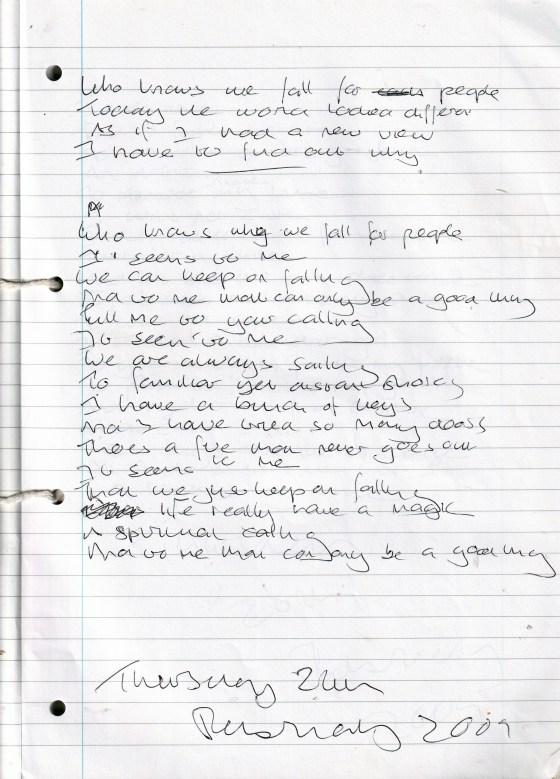 Who knows we fall for people
Today the world looked differ
As if I had a new view
I have to find out why
Who knows why we fall for people
It seems to me
We can keep on falling
And to me that can only be a good thing
Pull me to your calling
It seem to me
We are always sailing
To familiar yet distant shores
I have a bunch of keys
And I have tried so many doors
Theres a fire that never goes out
It seems to me
That we just keep on falling
life really have a magic
A spiritual calling
And to me that can only be a good thing
Thursday
2009